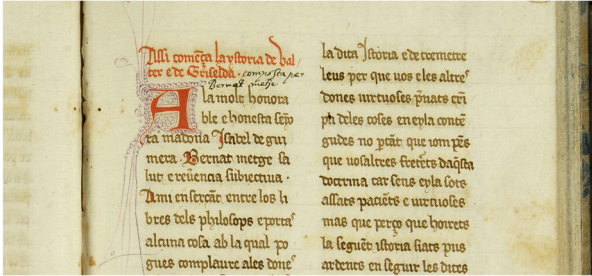 Assi comença la ystoria de Val
ter e de Griselda · composta per
Bernat metge
A la molt honora
ble e honesta senyo
ra madona Isabel de gui
mera. Bernat metge sa
lut e reuerencia subiectiua.
A mi encercant entre los li
bres dels philosops e poetas
alcuna cosa ab la qual po
gues complaure a les done
la dita Istoria e de trametre
leus per que uos e les altres
dones uirtuoses prenats exi
pli de les coses en eyla conten
gudes no contrastant que iom pens
que uosaltres fretets daqsta
doctrina car sens eyla sots
assats pacients e uirtuoses
mas que perço que hoirets
la seguent istoria siats pus
ardents en seguir les dites